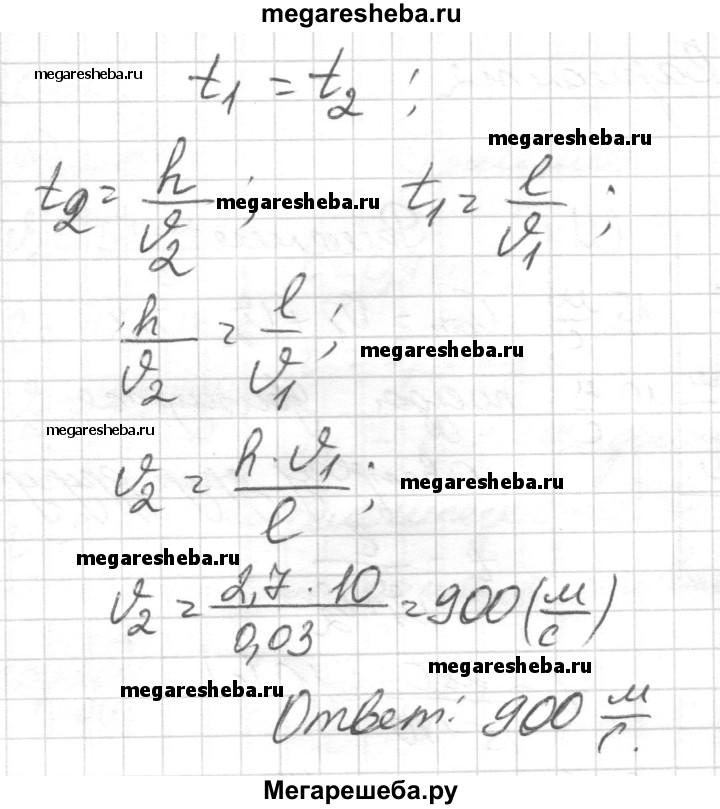 megaresheba.ru
megaresheba.ru t₁ = t₂ ;
megaresheba.ru
t₂ = h/ϑ₂ ; megaresheba.ru t₁ = l/ϑ₁ ;
h/ϑ₂ = l/ϑ₁ ; megaresheba.ru
megaresheba.ru
ϑ₂ = h · ϑ₁/l ; megaresheba.ru
megaresheba.ru
ϑ₂ = 2,7 · 10/0,03 = 900 (м/с)
megaresheba.ru
megaresheba.ru
Ответ: 900 м/с.
Мегарешеба.ру